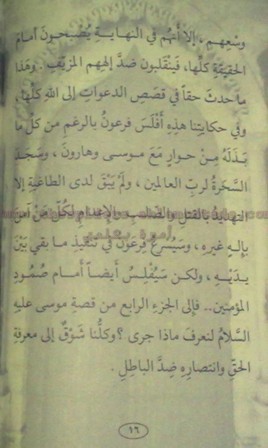 وسْعِهِمْ، إلاَّ أَنَّهُم في النهايـةِ يُصْبِحُونَ أَمامَ
الحَقِيقَةِ كلِّها، فَيَنْقَلِبون ضدَّ إلهِهم المزيَّفِ. وهذا
ما حدثَ حقاً في قصَصِ الدعواتِ إلى اللهِ كلِّها.
وفي حكايتِنا هذِهِ أَفْلَسَ فرعونُ بالرغمِ من كلِّ ما
بَذَلَهُ مِنْ حوارٍ مَعَ مـوسـى وهارونَ، وسَجَدَ
السَّحَرةُ لربِّ العالمين، ولَمْ يَبْقَ لدى الطاغيةِ إلاَّ
التهديدُ بالقتلِ والصَّلبِ والإعدامِ لكُلِّ مَنْ آمنَ
بإلـهٍ غيرِهِ، وسَيُسْرعُ فرعونُ في تنفيذِ ما بقيَ بَيْنَ
يـدَيْـهِ، ولكـن سَيُفْلِسُ أيضـاً أَمـامَ صُمُودِ
المؤمنين.. فإلى الجزءِ الرابعِ من قصةِ موسى عليهِ
السَّلامُ لنعرفَ ماذا جرى؟ وكلُّنا شَوْقٌ إلى معرفةِ
الحقِّ وانتصارِهِ ضِدَّ الباطِلِ.
١٦